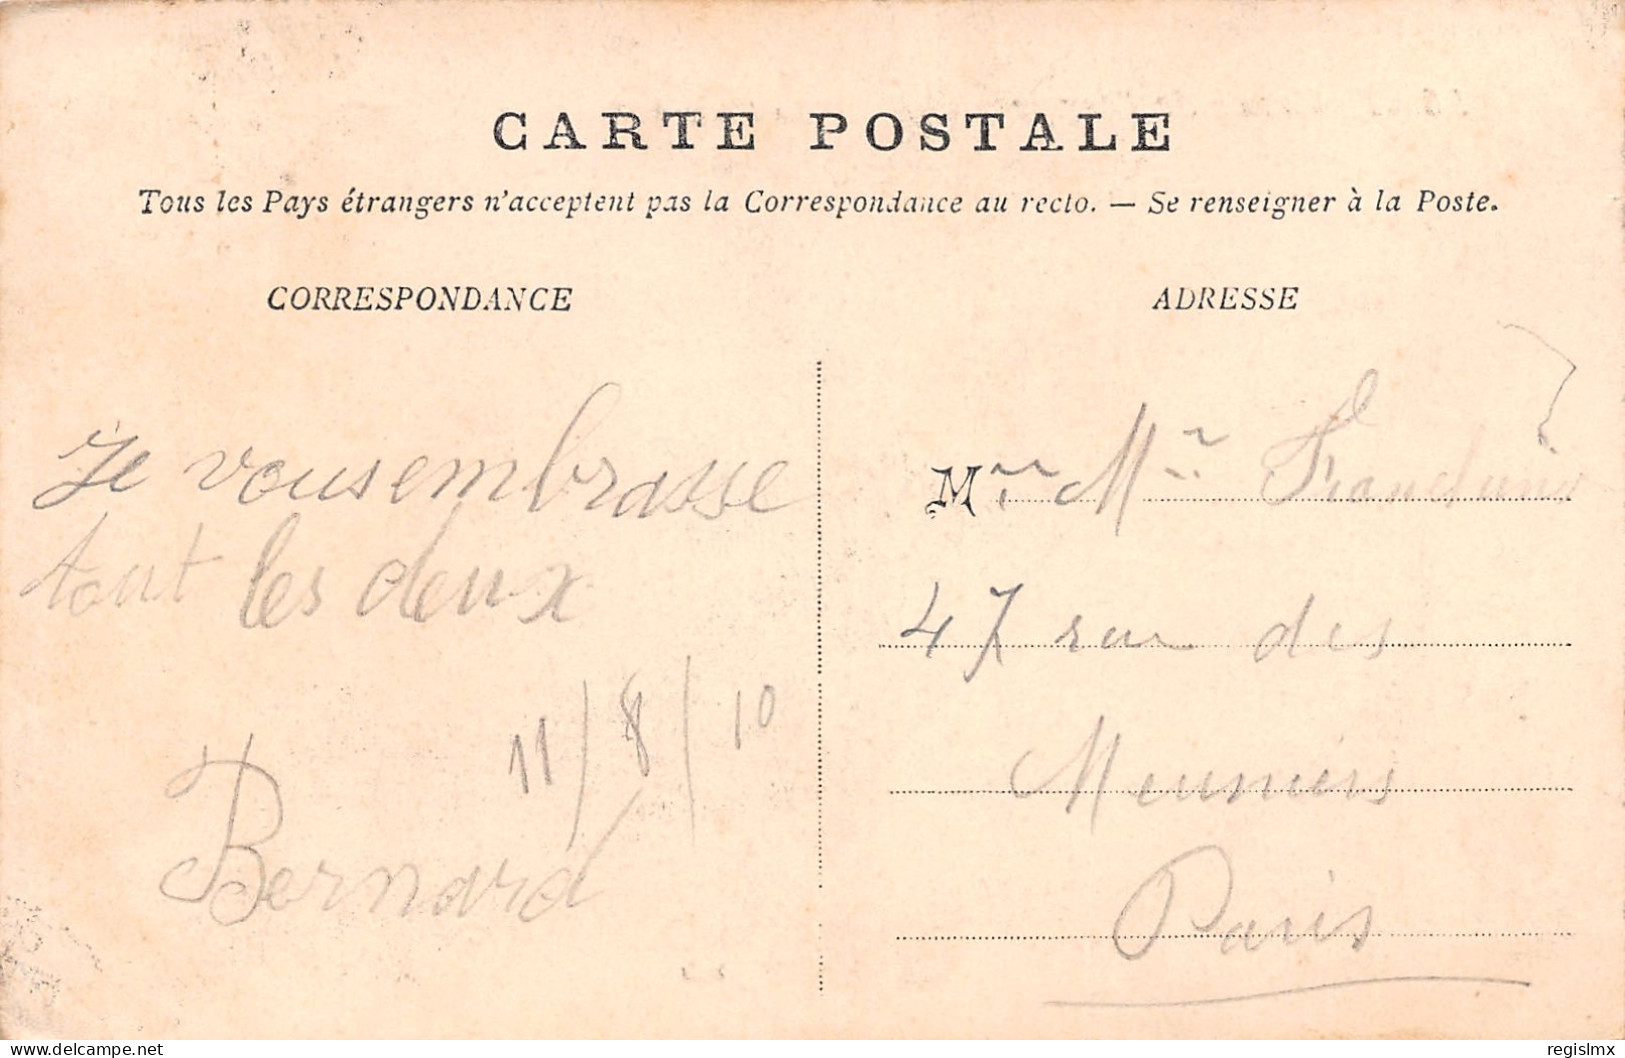 CARTE POSTALE
Tous les Pays étrangers n'acceptent pas la Correspondance au recto. — Se renseigner à la Poste.
CORRESPONDANCE
Je vous embrasse
tout les deux
11/8/10
Bernard
ADRESSE
M
47 rue des
Meuniers
Paris
www.delcampe.net
regislmx